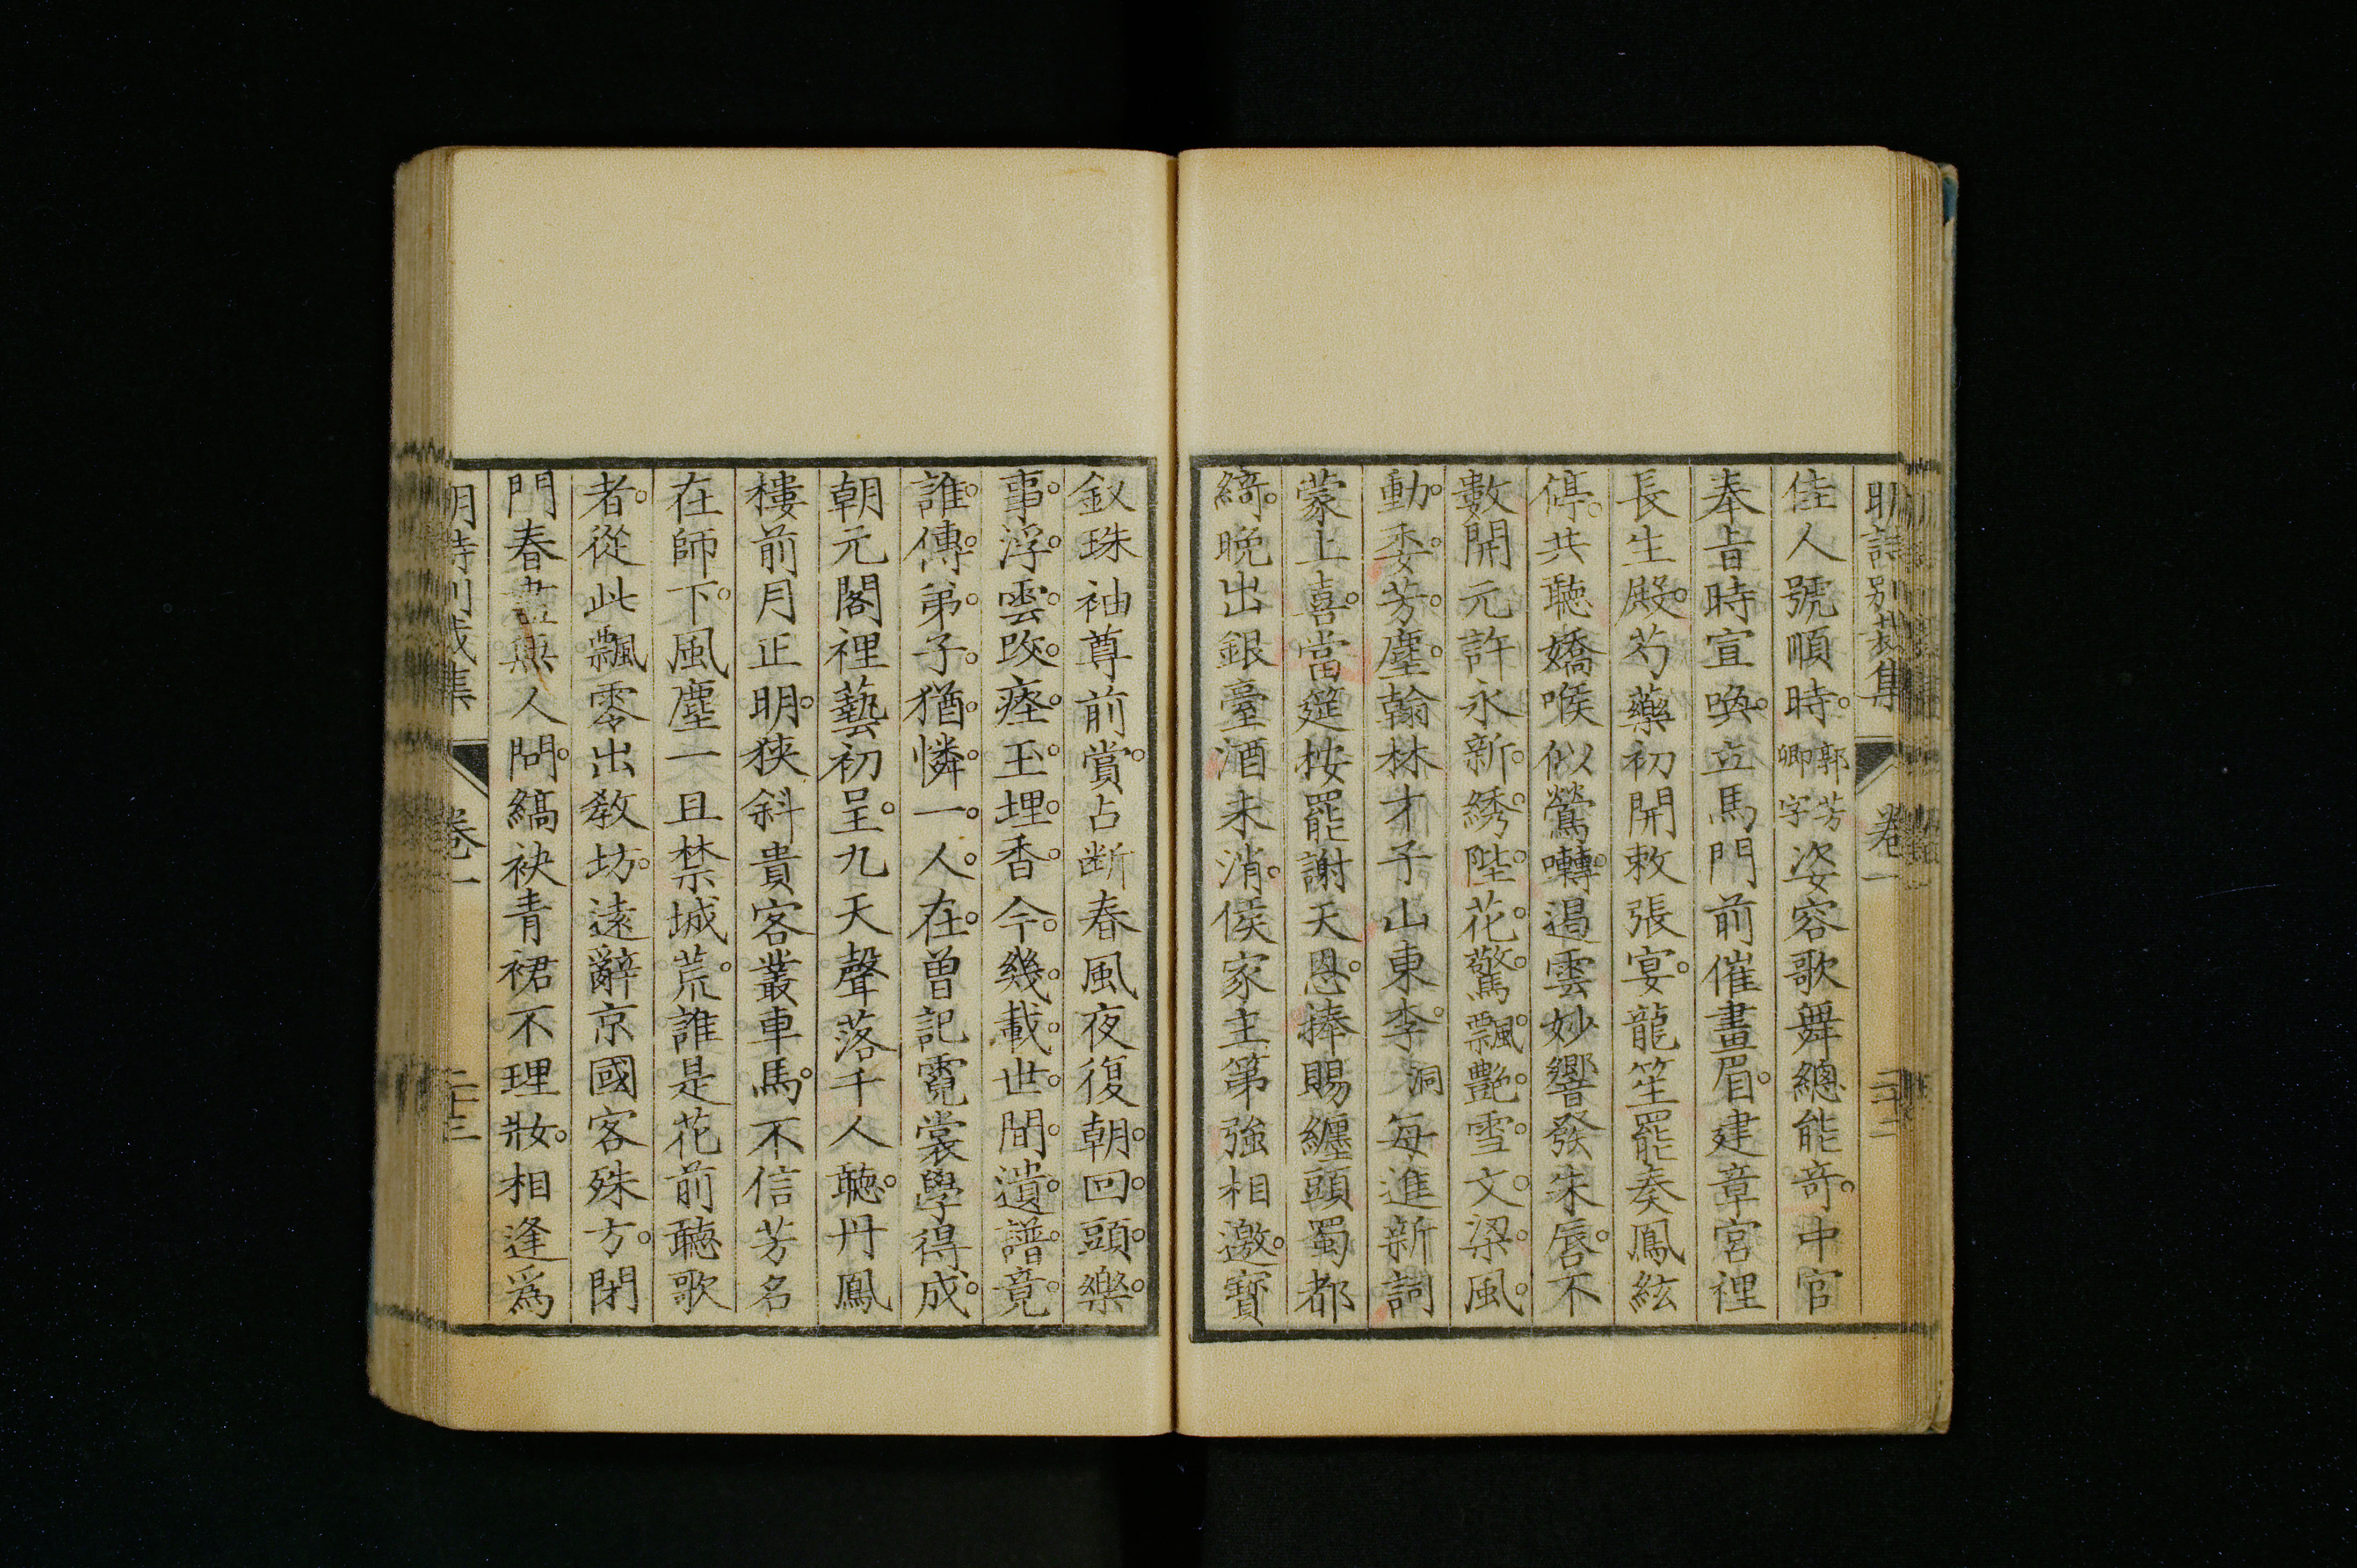 明詩別裁集 卷一 二十二
佳人號順時。郭芳卿字姿容歌舞總能奇。中官
奉旨時宣喚。立馬門前催畫眉。建章宮裡
長生殿。芍藥初開敕張宴。龍笙罷奏鳳絃
停。共聽嬌喉似鶯囀。遏雲妙響發朱唇。不
數開元許永新。綉陛花驚飄艷雪。文梁風
動委芳塵。翰林才子山東李。洞每進新詞
蒙上喜。當筵按罷謝天恩。捧賜纏頭蜀都
綺。晚出銀臺酒未消。侯家主第強相邀。寶
釵珠袖尊前賞。占断春風夜復朝。回頭樂
事浮雲改。瘞玉埋香今幾載。世間遺譜竟
誰傳。弟子猶憐一人在。曾記霓裳學得成。
朝元閣裡藝初呈。九天聲落千人聽。丹鳳
樓前月正明。狹斜貴客叢車馬。不信芳名
在師下。風塵一旦禁城荒。誰是花前聽歌
者。從此飄零出教坊。遠辭京國客殊方。閉
門春盡無人問。縞袂青裙不理妝。相逢為
明詩別裁集 卷一 二十三